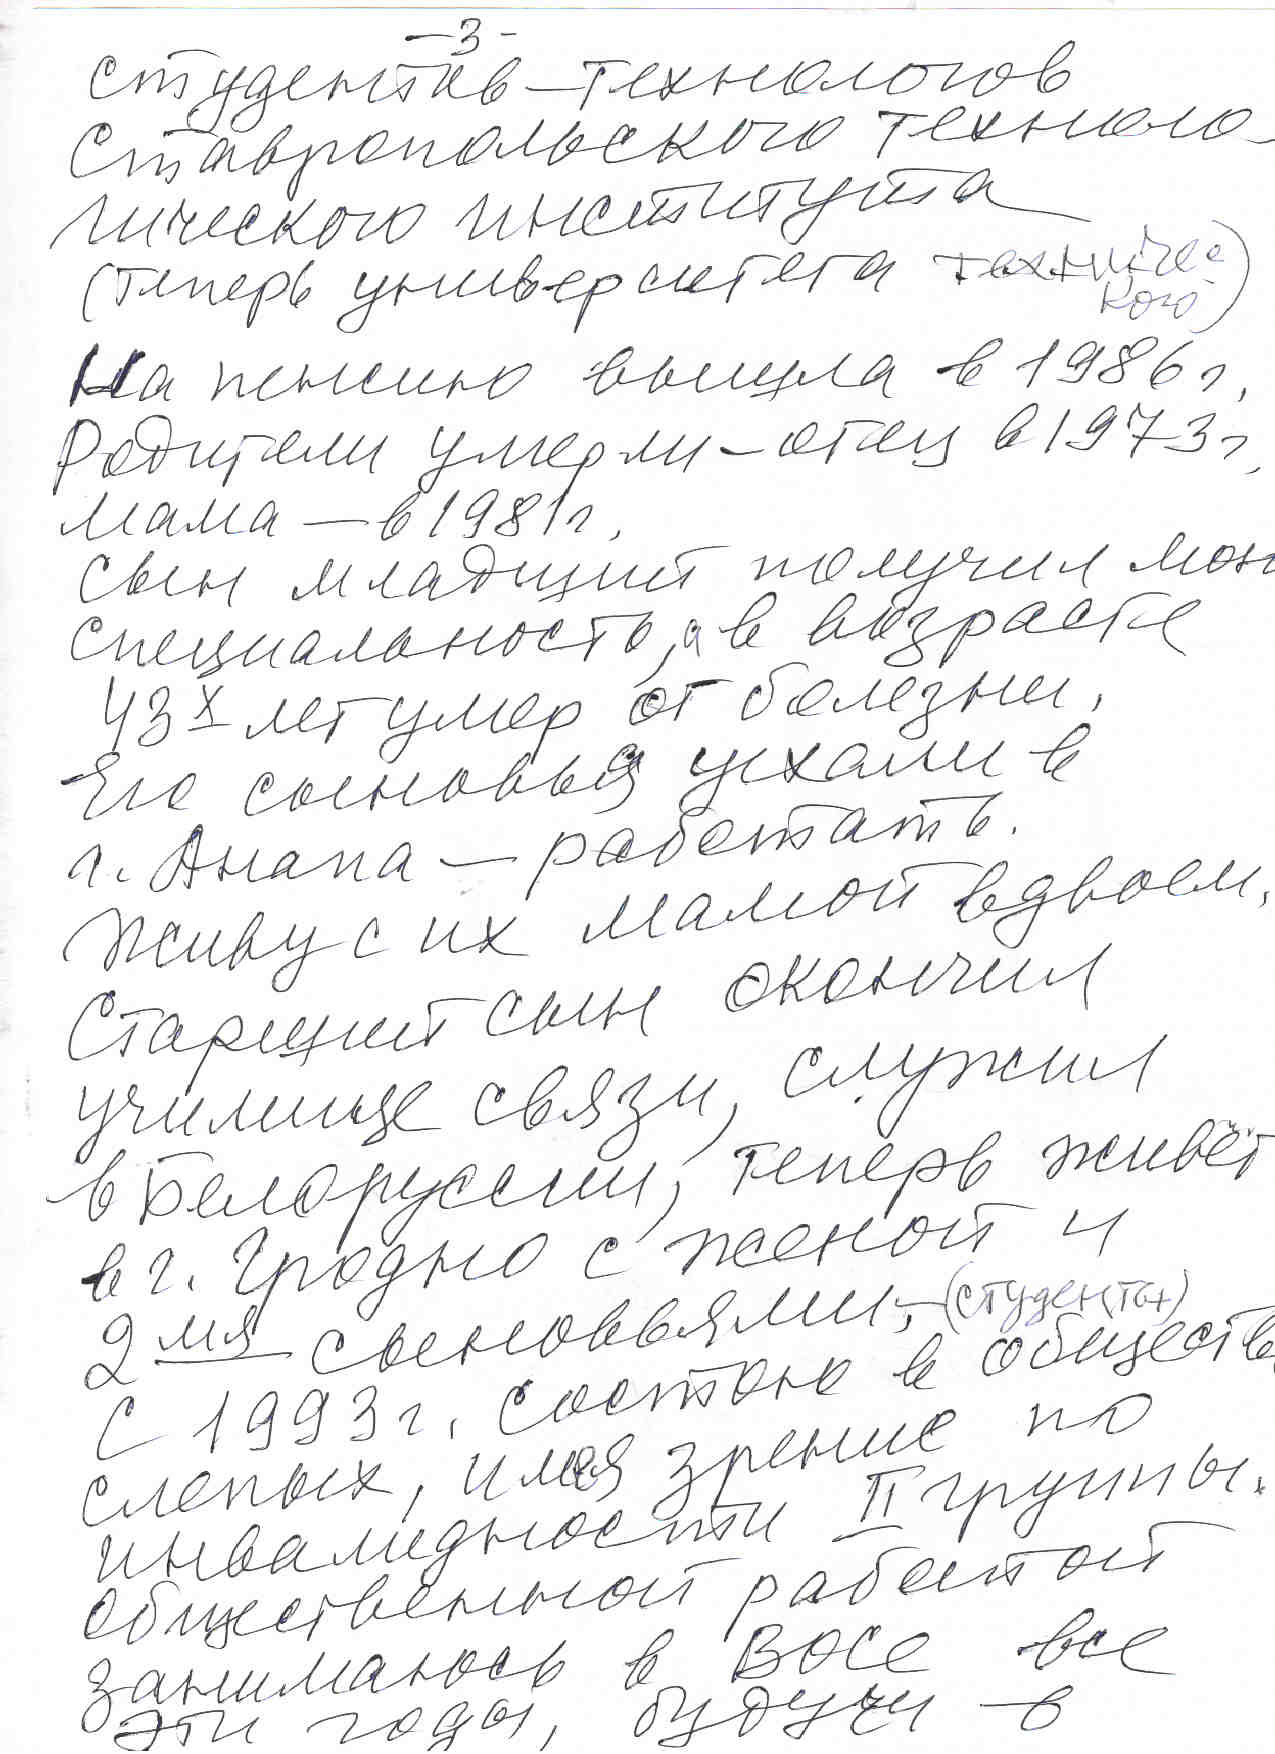 -3-
студентов-технологов
Ставропольского техноло-
гического института
(теперь университета техничес-
кого)
На пенсию вышла в 1986г.
Родители умерли-отец в 1973г,
мама-в 1981г.
Сын младший получил мою
специальность, а в возрасте
43х лет умер от болезни.
Его сыновья уехали в
г. Анапа-работать.
Живу с их мамой вдвоем.
Старший сын окончил
училище связи, служил
в Белоруссии, теперь живёт
в г. Гродно с женой и
2мя сыновьями,-(студенты)
С 1993г. состою в обществе
слепых, имея зрение по
инвалидности II группы.
Общественной работой
занимаюсь в ВОСе все
эти годы, будучи в